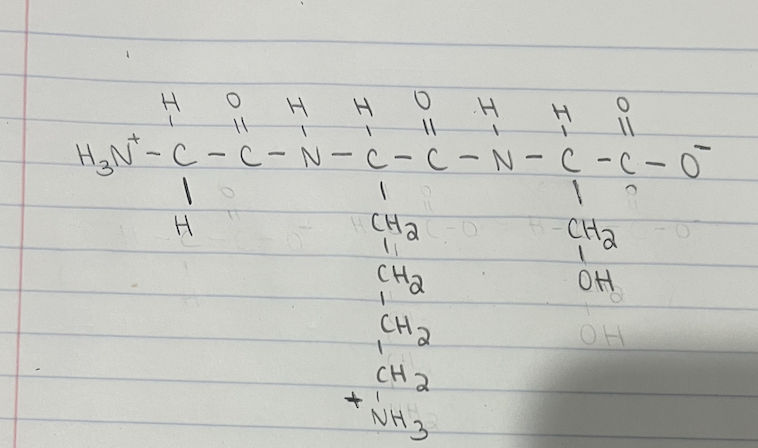 H O H H O H H O
H₃N⁺ – C – C – N – C – C – N – C – C – O⁻
H CH₂ CH₂
CH₂ OH
CH₂
CH₂
⁺NH₃